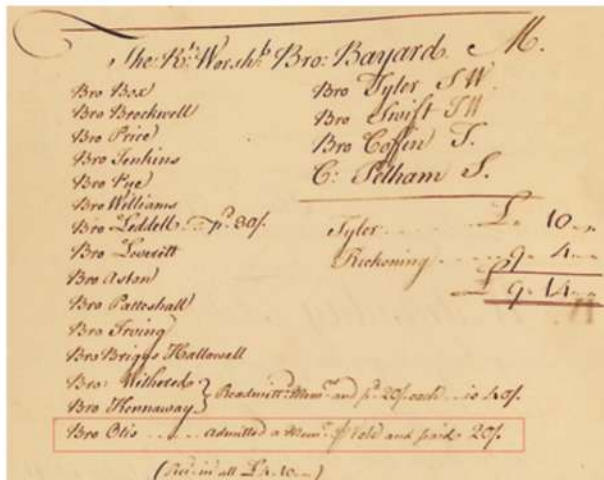 The Rt. Worshl. Bro: Bayard. M.
Bro Box
Bro Brockwell
Bro Price
Bro Jenkins
Bro Pye
Bro Williams
Bro Leddell pd. 30/.
Bro Loveritt
Bro Aston
Bro Patteshall
Bro Irving
Bro Briggs Hallowell
Bro: Withered
Bro Hennaway
Readmitt. Mem. and pd. 20/. each is 40/.
Bro Otis admitted a Mem. Vote and paid 20/.
(Recd. in all £4.10)
Bro Tyler S W.
Bro Swift J W
Bro Coffin T.
C: Pelham S.
Tyler £ 10
Reckoning 9 4
£ 9 14